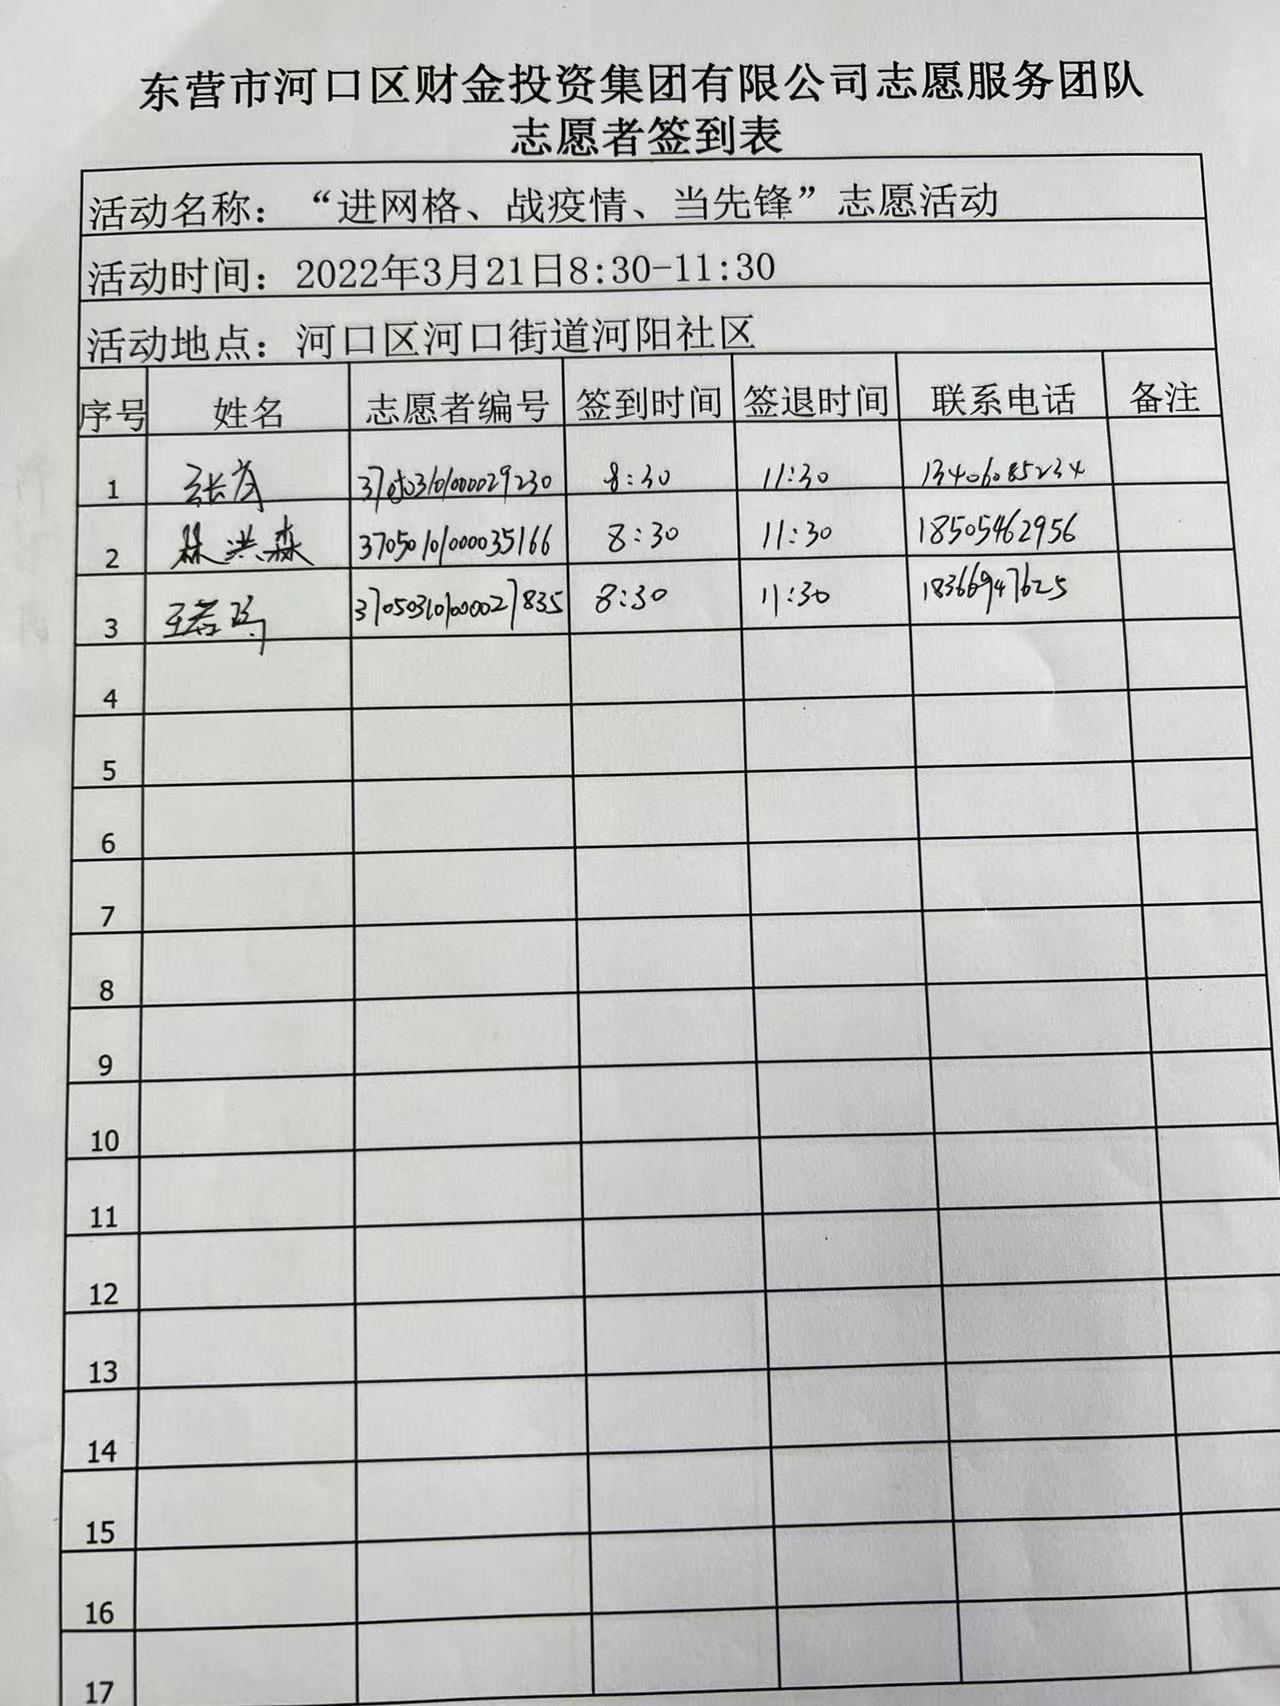 东营市河口区财金投资集团有限公司志愿服务团队
志愿者签到表
活动名称：“进网格、战疫情、当先锋”志愿活动
活动时间：2022年3月21日8:30-11:30
活动地点：河口区河口街道河阳社区
序号 姓名 志愿者编号 签到时间 签退时间 联系电话 备注
1 8:30 11:30 13406085234
2 林洪森 370501010000035166 8:30 11:30 18505462956
3 370503010000027835 8:30 11:30 18366947625
4
5
6
7
8
9
10
11
12
13
14
15
16
17